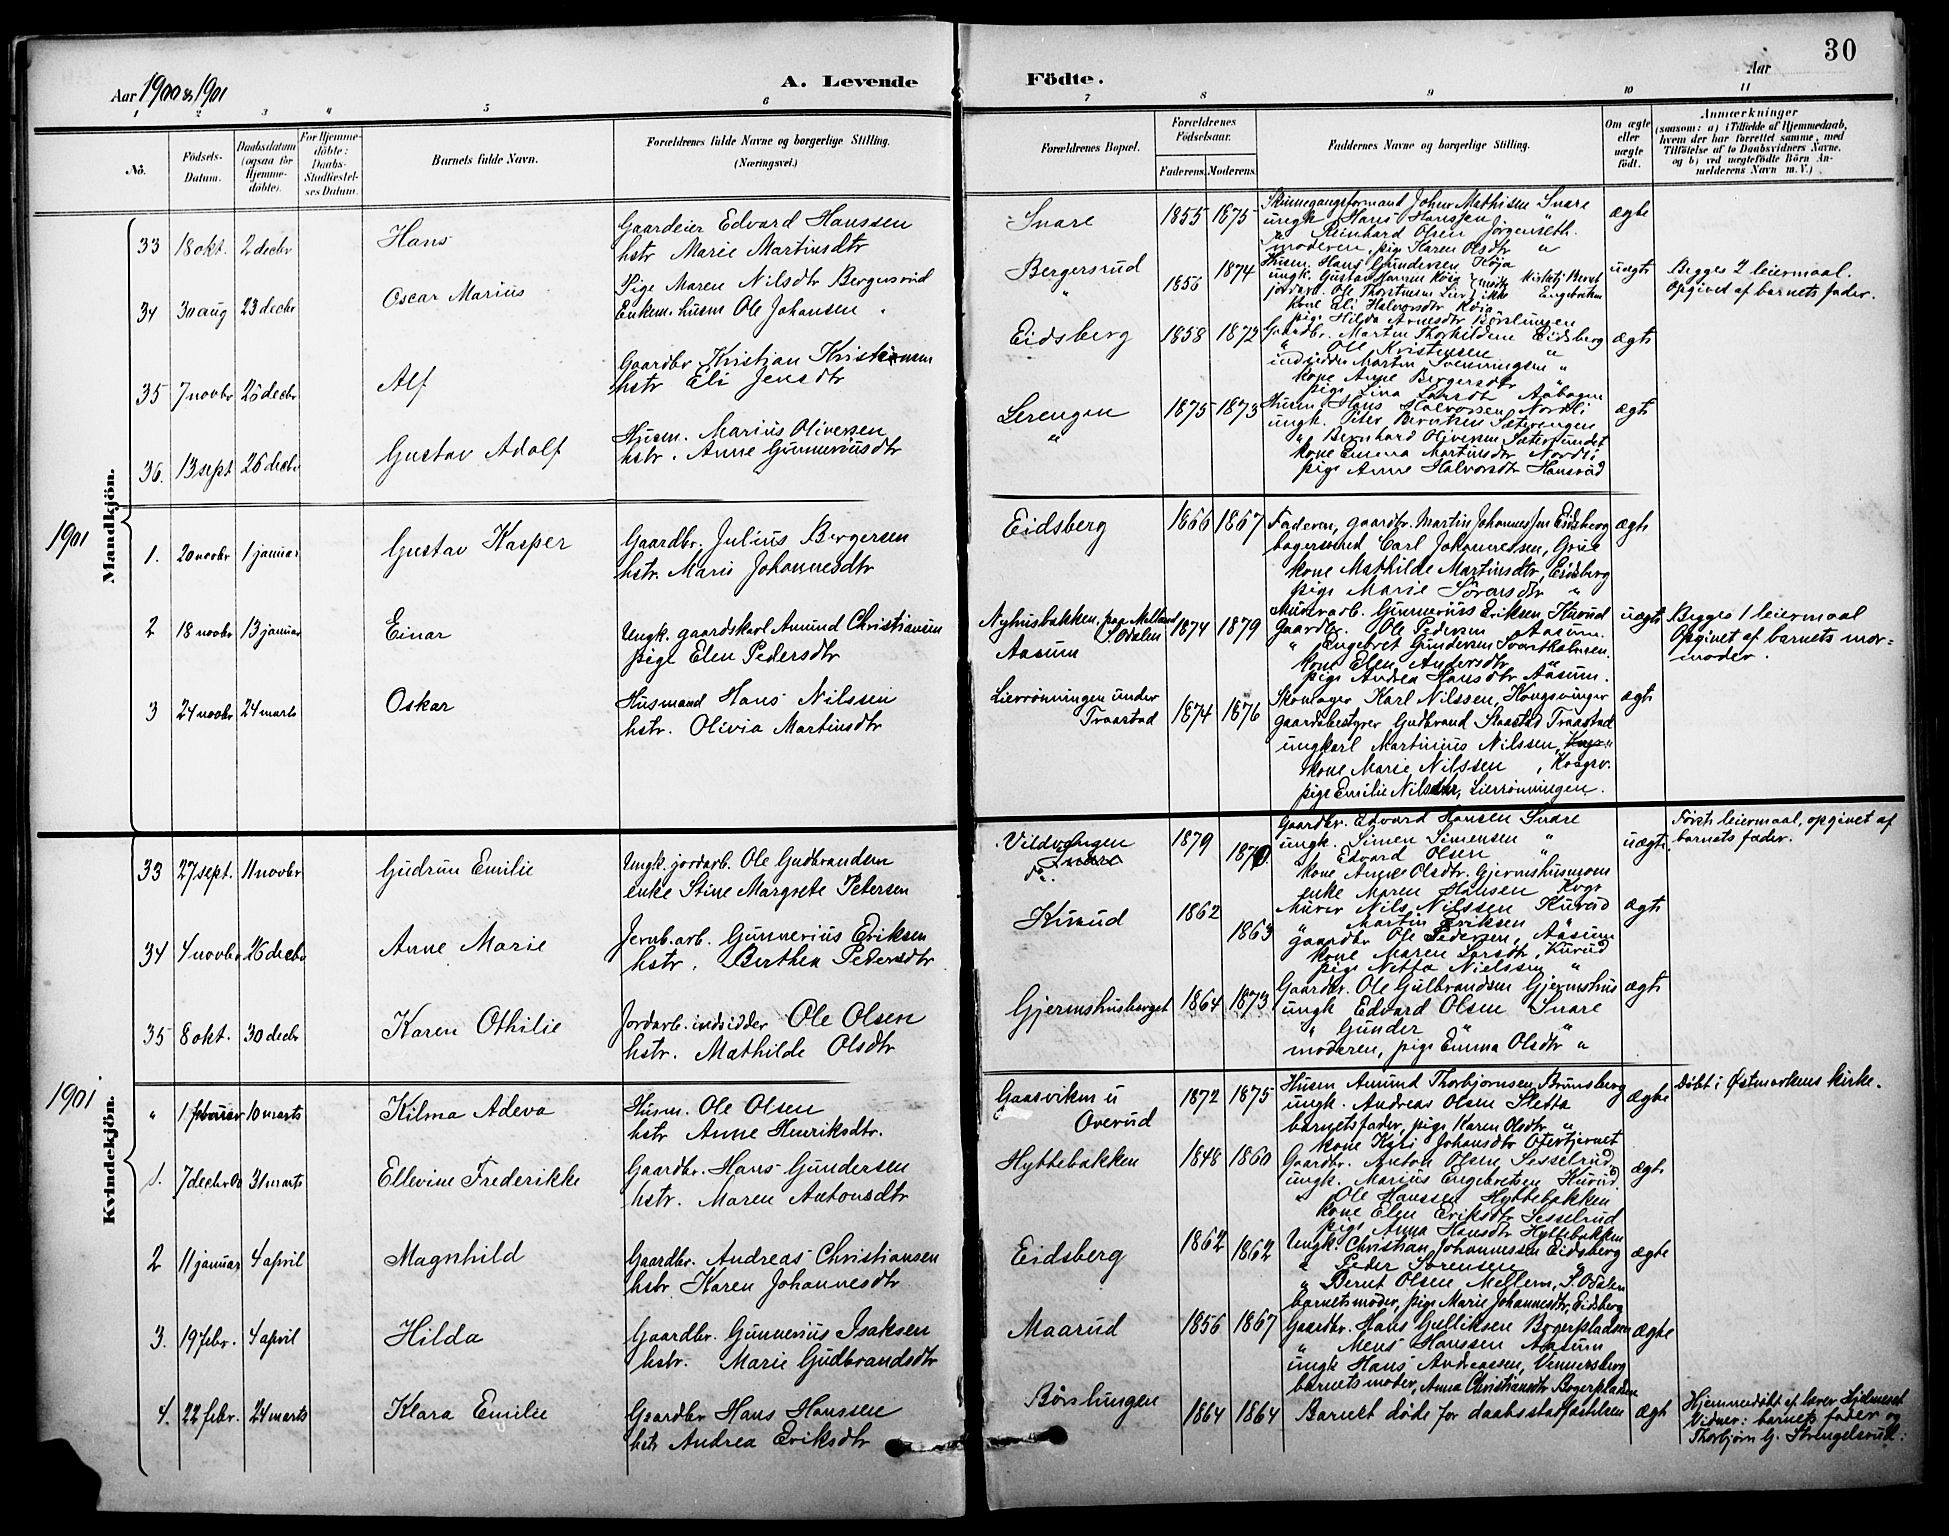 30
Aar 1900 & 1901
A. Levende
Fødte.
Aar
1 2 3 4 5 6 7 8 9 10 11
No.
Fødsels-Datum.
Daabsdatum (ogsaa for Hjemmedøbte).
For Hjemmedøbte: Daabs-Stadfæstelses Datum.
Barnets fulde Navn.
Forældrenes fulde Navne og borgerlige Stilling. (Næringsvei.)
Forældrenes Bopæl.
Forældrenes Fødselsaar.
Faderens. Moderens.
Faddernes Navne og borgerlige Stilling.
Om ægte eller uægte født.
Anmærkninger (saasom: a) i Tilfælde af Hjemmedaab, hvem der har forrettet samme, med Tilføielse af to Daabsvidners Navne, og b) ved uægtefødte Børn Anmelderens Navn m. V.)
Mandkjön.
33 18 okt. 2 decbr Hans
Gaardeier Edvard Hanssen
hstr Marie Martinsdtr
Snare 1855 1875
Skinnegangsformand Johan Mathisen Snare
ungk Hans Hanssen "
" Reinhard Olsen Jørgenseth.
moderen, pige Karen Olsdtr "
ægte
34 30 aug 23 decbr Oscar Marius
Pige Maren Nilsdtr Bergersrud
Enkem. husm Ole Johansen "
Bergersrud 1856 1874
Husm. Hans Gundersen Köja
kone Eli Halvorsdtr Köja
pige Hilda Arnesdtr Börslungen
uægte
Begges 2 leiermaal.
Opgivet af barnets fader.
35 7 novbr 26 decbr Alf
Gaardbr Kristian Kristiansen
hstr Eli Jensdtr
Eidsberg 1858 1872
Gaardbr. Martin Thorkildsen Eidsberg
" Ole Kristensen "
indsidder Martin Svenningsen "
kone Anne Bergersdtr "
pige Lina Larsdtr Aabogen
ægte
36. 13 sept 26 decbr Gustav Adolf
Husm. Marius Oliversen
hstr. Anne Gunneriusdtr
Serengen " 1875 1873
Husm. Hans Halvorsen Nordli
ungk. Peter Berntsen Sæterengen
" Bernhard Oliversen Sætersundet
kone Emma Martinsdtr Nordli
pige Anne Halvorsdtr Hansrud
ægte
1901
1. 20 novbr 1 januar Gustav Kasper
Gaardbr. Julius Bergersen
hstr. Maris Johannesdtr
Eidsberg 1866 1867
Faderen, gaardbr. Martin Johannessen Eidsberg
bagersvend Carl Johannessen, Grue
kone Mathilde Martinsdtr, Eidsberg
pige Marie Sörensdtr "
ægte
2 18 novbr 13 januar Einar
Ungk. gaardskarl Amund Christiansen
pige Elen Pedersdtr
Nyhusbakken, pige Mellem S. Odalen
Aasum
1874 1879
Murerarb. Gunnerius Eriksen Kurud
Gaardbr. Ole Pedersen Aasum.
" Engebret Gundersen Svartholmen.
kone Elen Andersdtr "
pige Andrea Hansdtr Aasum.
uægte
Begges 1 leiermaal
Opgivet af barnets mor-
moder.
3 24 novbr 24 marts Oskar
Husmand Hans Nilssen
hstr. Olivia Martinsdtr
Lierrönningen under
Traastad
1874 1876
Skomager Karl Nilssen, Kongsvinger
gaardsbestyrer Gudbrand Staastad Traastad
ungkarl Martinius Nilssen,
kone Marie Nilssen, Kongsv.
pige Emilie Nilsdtr, Lierrönningen.
ægte
Kvindekjön.
33 27 sept. 11 novbr Gudrun Emilie
Ungk. jordarb. Ole Gudbrandsen
enke Stine Margrete Petersen
Vildvangen
Snare
1879 1870
Gaardbr. Edvard Hansen Snare
ungk. Simen Simensen "
" Edvard Olsen "
kone Anne Olsdtr. Gjermshusmoen
enke Maren Hansen Kvgr
uægte
Första leiermaal, opgivet af
barnets fader.
34 4 novbr 26 decbr Anne Marie
Jernb.arb. Gunnerius Eriksen
hstr. Berthea Pedersdtr
Kurud 1862 1863
Murer Nils Nilssen Kurud
" Martin Eriksen "
gaardbr Ole Pedersen, Aasum
kone Maren Larsdtr, Kurud
pige Netta Nielssen "
ægte
35 8 okt. 30 decbr Karen Othilie
Jordarb. indsidder Ole Olsen
hstr. Mathilde Olsdtr
Gjermshusberget 1864 1873
Gaardbr. Ole Gulbrandsen Gjermshus
ungk Edvard Olsen Snare
" Gunder " "
moderen, pige Emma Olsdtr "
ægte
1901
" 1 februar 10 marts Kilma Adeva
Husm. Ole Olsen
hstr Anne Henriksdtr.
Gaasviken u
Overud
1872 1875
Husm Amund Thorbjørnsen Brunsberg
ungk. Andreas Olsen Sletta
barnets fader, pige Karen Olsdtr "
kone Kari Johansdtr Otertjernet
ægte
Døbt i Østmarkens kirke.
1. 7 decbr 00 31 marts Ellevine Frederikke
Gaardbr. Hans Gundersen
hstr. Maren Antonsdtr
Hyttebakken 1848 1860
Gaardbr. Anton Olsen Sesselrud
ungk. Marius Engebretsen Kurud
" Ole Hanssen Hyttebakken
kone Elen Eriksdtr Sesselrud
pige Anna Hansdtr Hyttebakken
ægte
2 11 januar 4 april Magnhild
Gaardbr. Andreas Christiansen
hstr. Karen Johannesdtr
Eidsberg 1862 1862
Ungk. Christian Johannessen Eidsberg
" Peder Sørensen "
" Bernt Olsen Mellem, S. Odalen
barnets moder, pige Marie Johannesdtr, Eidsberg
ægte
3. 19 febr. 4 april Hilda
Gaardbr. Gunnerius Isaksen
hstr. Marie Gudbrandsdtr
Maarud 1856 1867
Gaardbr. Hans Gulliksen Bogerpladsen
" Mens Hanssen Aasum
ungk Hans Andreassen, Vennersberg
barnets moder, Anna Christiansdtr Bogerpladsen
ægte
4. 22 febr. 24 marts Klara Emilie
Gaardbr Hans Hanssen
hstr Andrea Eriksdtr
Börslungen 1864 1864
Barnet døde før daabsstadfæstelsen
ægte
Hjemmedøbt af lærer Hjelmeset
Vidner: barnets fader og
Thorbjørn G. Strengelsrud.